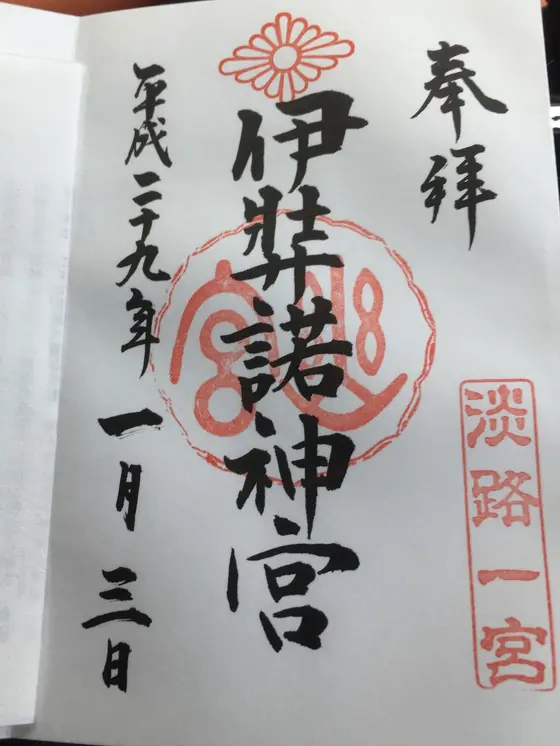 奉拝
淡路一宮
伊弉諾神宮
平成二十九年一月三日